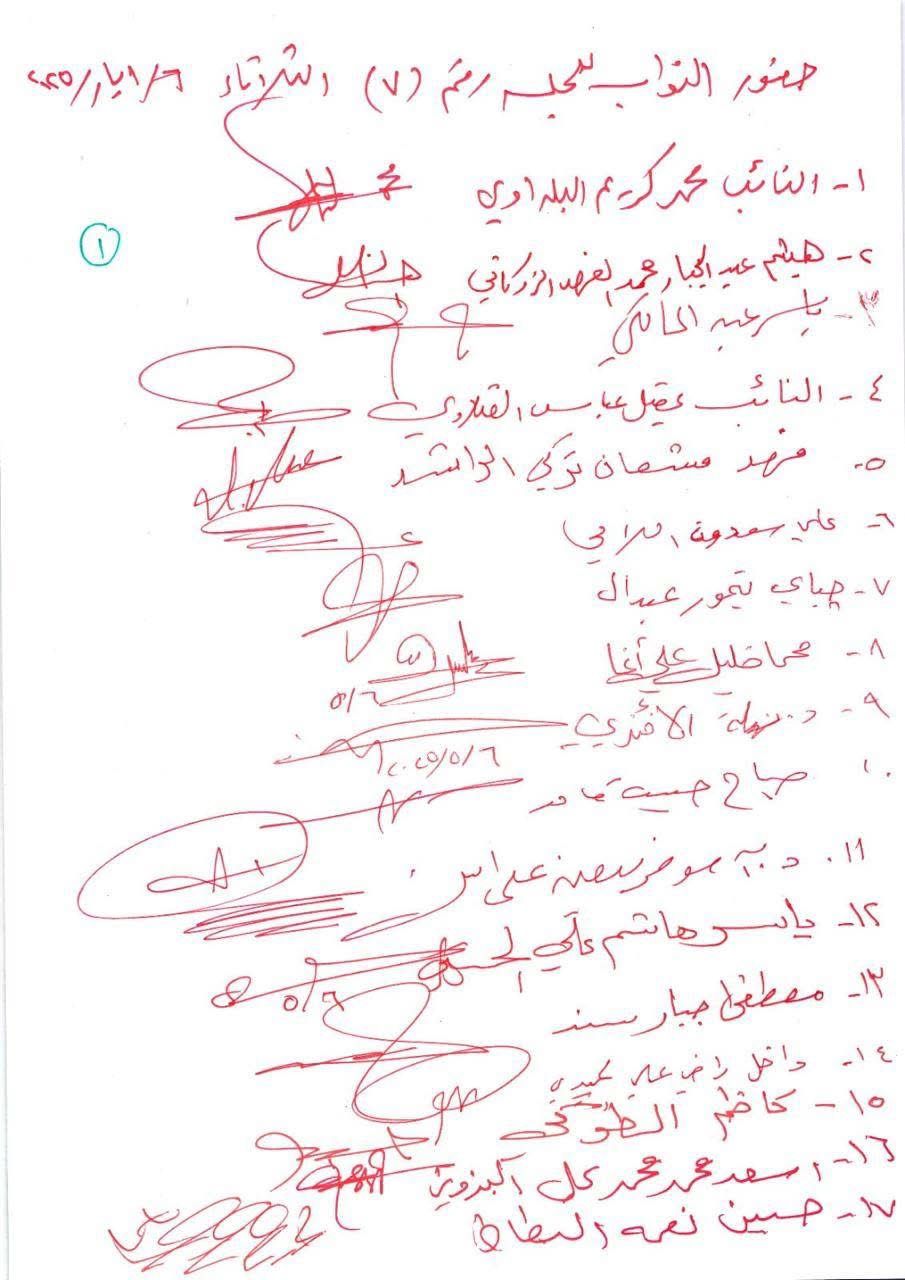 حضور النواب للجلسه رقم (٧) الثلاثاء ٦/ايار/٢٠٢٥
١- النائب محمد كريم البلداوي
١
٢- هيثم عبد الجبار محمد الفهد الزركاني
٣- ياسر عبد المالكي
٤- النائب عقيل عباس الفتلاوي
٥- فهد مشعان تركي الراشد
٦- علي سعدون اللامي
٧- جياي تيمور عبدال
٨- محما خليل علي أغا
٥/٦
٩- د. نهلة الأفندي
٢٠٢٥/٥/٦
١٠. صباح حسن
١١. د.
١٢- ياسر هاشم علي
٥/٦
١٣- مصطفى جبار سند
١٤- داخل راضي علي
١٥- كاظم الطوكي
١٦- اسعد محمد محمد علي البزوني
١٧- حسين نعمه البطاط